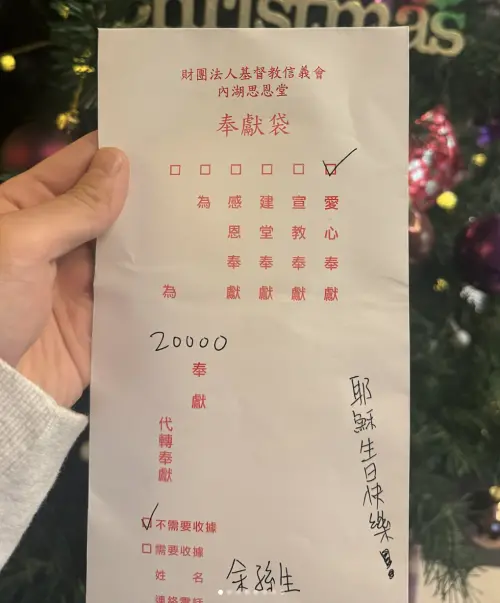 Christmas
財團法人基督教信義會
內湖思恩堂
奉獻袋
愛心奉獻
宣教奉獻
建堂奉獻
感恩奉獻
為
為
20000
奉獻
代轉奉獻
耶穌生日快樂!
不需要收據
需要收據
姓 名
聯絡電話